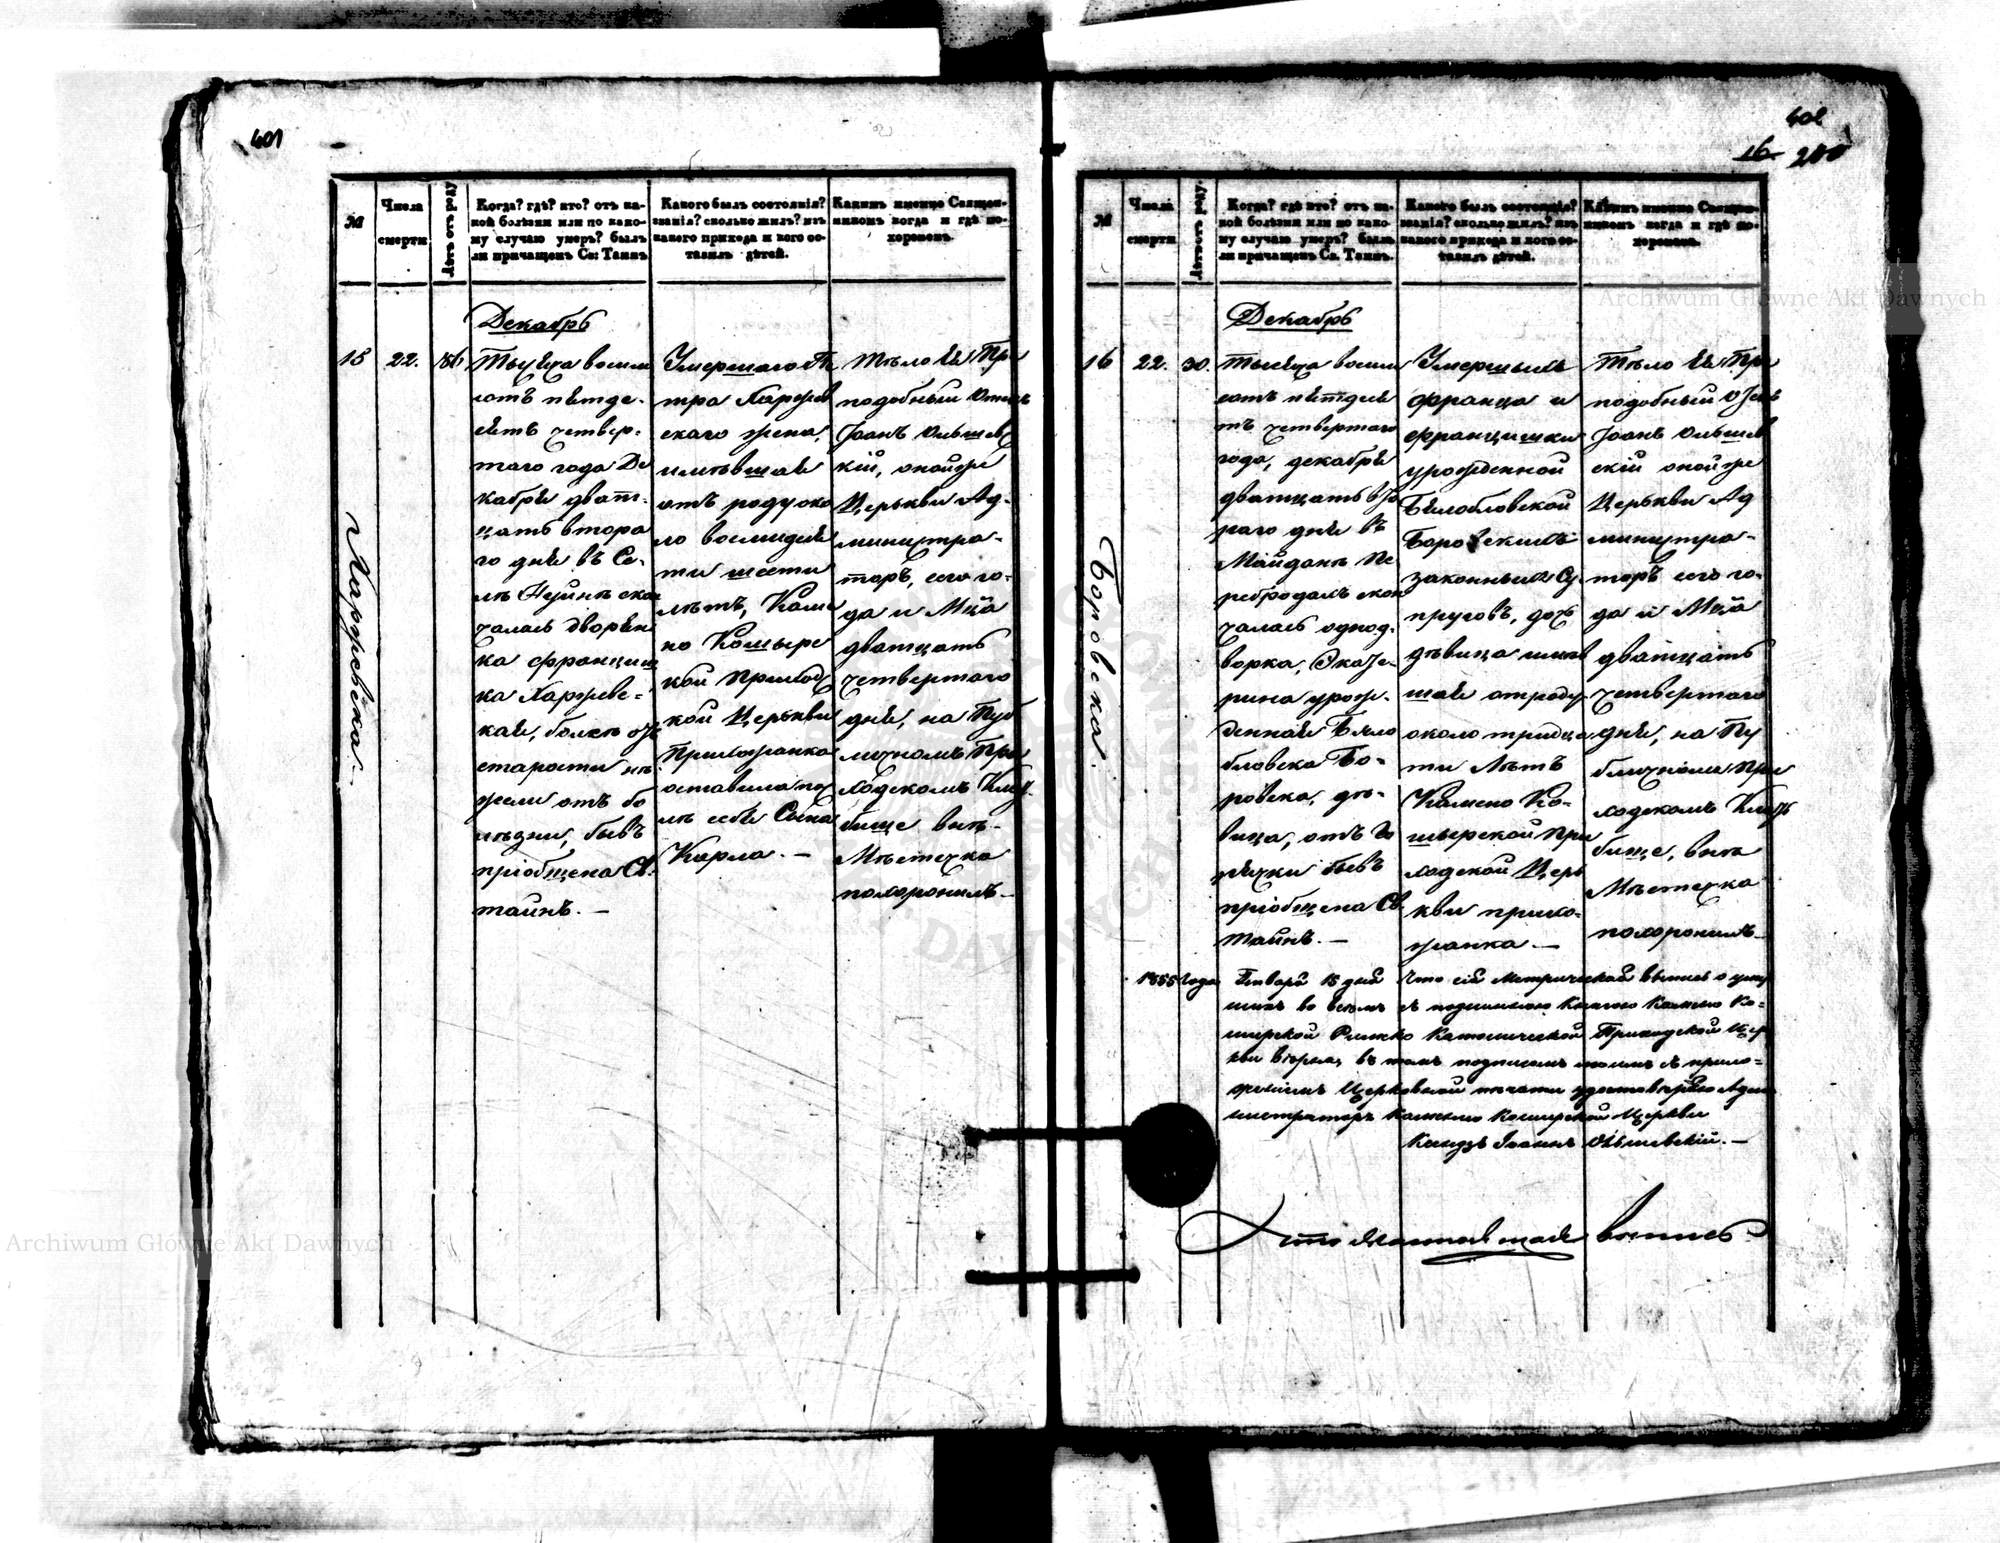 401
№
Числа смерти
Лѣтъ отъ роду
Когда? гдѣ? кто? отъ ка-
кой болѣзни или по како-
му случаю умеръ? былъ
ли причащенъ Св: Таинъ
Какого былъ состоянія?
званія? сколько жилъ? изъ
какого прихода и кого ос-
тавилъ дѣтей.
Какимъ именно Священ-
никомъ когда и гдѣ по-
хороненъ.
Декабрь
15
22.
86
Тысяча восем
сотъ пятде-
сятъ четвер-
таго года Де
кабря двад-
цать втора
го дня въ Се-
лѣ скон
чалась дворян
ка Франциш
ка Харжев-
ская, болѣе отъ
старости не-
жели отъ бо
лѣзни, бывъ
пріобщена Св.
таинъ. —
Умершаго Пе
тра Харжев
скаго жена,
имѣвшая
отъ роду око
ло восмидеся
ти шести
лѣтъ, Каме
но Кошырс
кой Приход
кой Церькви
Прихожанка
оставила по
слѣ себя Сына
Карла. —
Тѣло Ея Пре
подобный Отецъ
Іоанъ Ольшевс
кій, оной же
Церькви Ад-
министра-
торъ, сего го-
да и М-ца
двадцать
четвертаго
дня, на Пуб
личномъ При
ходскомъ Клад
бище внѣ-
Мѣстечка
похоронилъ. —
Харжевска. —
402
16
200
№
Числа смерти
Лѣтъ отъ роду.
Когда? гдѣ кто? отъ ка-
кой болѣзни или по како-
му случаю умеръ? былъ
ли причащенъ Св. Таинъ.
Какого былъ состоянія?
званія? сколько жилъ? изъ
какого прихода и кого ос-
тавилъ дѣтей.
Какимъ именно Священ-
никомъ когда и гдѣ по-
хороненъ.
Декабрь
16
22.
30.
Тысяча восем
сотъ пятдеся
тъ четвертаго
года, декабря
двадцать вто
раго дня въ
Майданѣ Пе
ребродахъ скон
чалась однод-
ворка, Екате-
рина урож-
денная Бяло
бловска Бо-
ровска, дѣ-
вица, отъ го
рячки бывъ
пріобщена Св
Таинъ. —
Умершыхъ
Франца и
Францишки
урожденной
Бялобловской
Боровскихъ
законныхъ Су-
пруговъ, дочь
дѣвица имѣв
шая отроду
около тридца
ти Лѣтъ
Камено Ко-
шырской При
ходской Церь
кви прихо-
жанка. —
Тѣло Ея Пре
подобный Отецъ
Іоанъ Ольшев
скій оной же
Церькви Ад
министра-
торъ сего го-
да и М-ца
двадцать
четвертаго
дня, на Пу
бличномъ При
ходскомъ Клад
бище, внѣ
Мѣстечка
похоронилъ. —
Боровска.
1855 года Генваря 15 дня Что сія Метрическая выпись о умер
шихъ во всемъ съ подлинною Книгою Камено Ко-
шырской Римско Католической Приходской Цер
кви вѣрна, въ томъ подписомъ моимъ съ прило-
женіемъ Церковной печати удостовѣряю Адми
нистраторъ Камено Кошырской Церкви
Ксендзъ Іоаннъ Ольшевскій. —
выпись
Archiwum Główne Akt Dawnych
Archiwum Główne Akt Dawnych